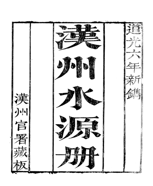 道光六年新鐫
漢州水源册
漢州官署藏板